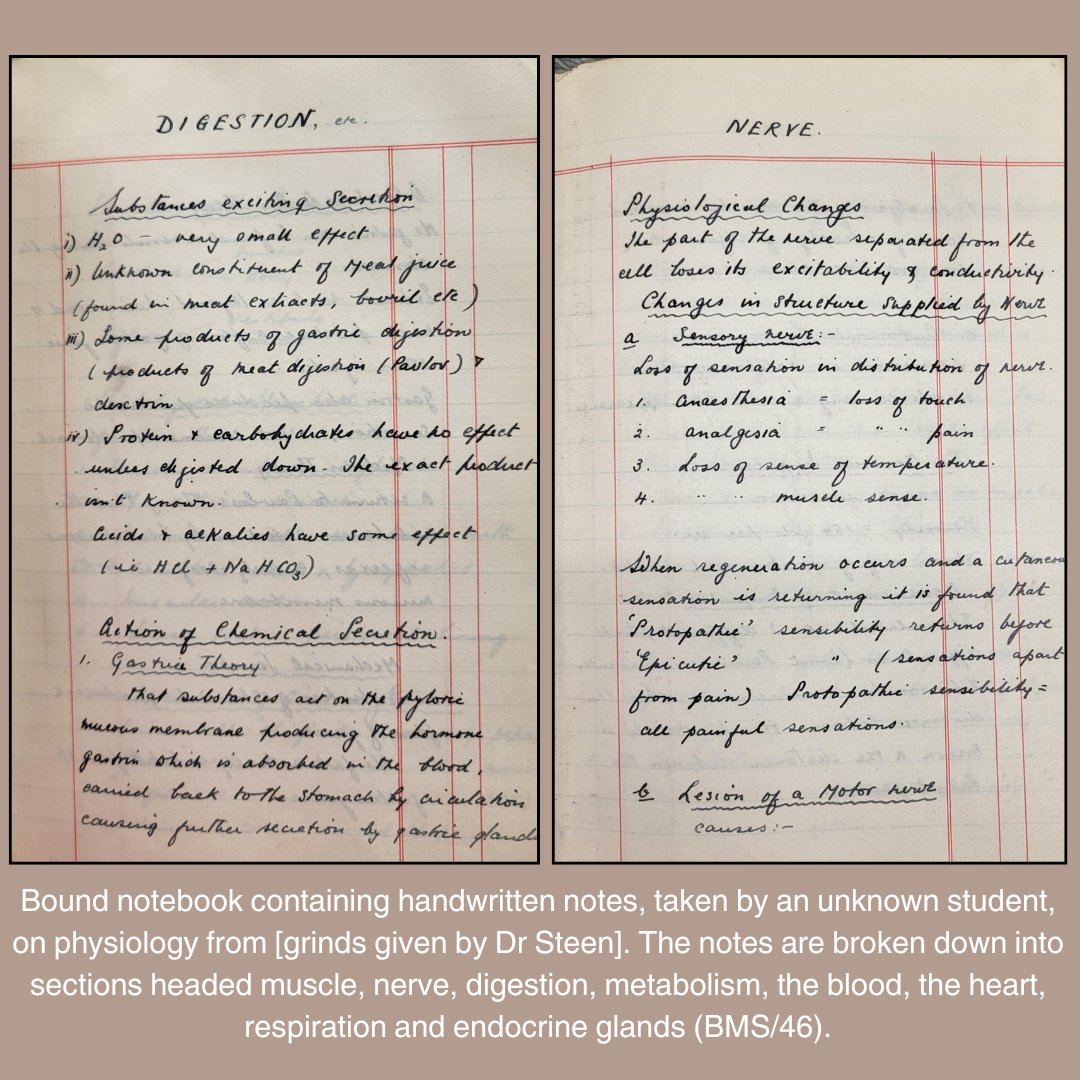 DIGESTION, etc.
Substances exciting Secretion
i) H2O - very small effect
ii) Unknown constituent of Meat juice
(found in meat extracts, bovril etc)
iii) Some products of gastric digestion
(products of meat digestion (Pavlov) &
dextrin
iv) Protein & carbohydrates have no effect
unless digested down. The exact product
isn't known.
Acids & alkalies have some effect
(ie HCl + NaHCO3)
Action of Chemical Secretion.
1. Gastric Theory
that substances act on the pyloric
mucous membrane producing the hormone
gastrin which is absorbed in the blood,
carried back to the stomach by circulation
causing further secretion by gastric glands
NERVE.
Physiological Changes
The part of the nerve separated from the
cell loses its excitability & conductivity.
Changes in structure supplied by Nerve
a Sensory nerve:-
Loss of sensation in distribution of nerve.
1. anaesthesia = loss of touch
2. analgesia = " " pain
3. Loss of sense of temperature.
4. " " muscle sense.
When regeneration occurs and a cutaneou
sensation is returning it is found that
'Protopathic' sensibility returns before
'Epicutic' " (sensations apart
from pain) Protopathic sensibility =
all painful sensations.
b Lesion of a Motor nerve
causes:-
Bound notebook containing handwritten notes, taken by an unknown student,
on physiology from [grinds given by Dr Steen]. The notes are broken down into
sections headed muscle, nerve, digestion, metabolism, the blood, the heart,
respiration and endocrine glands (BMS/46).